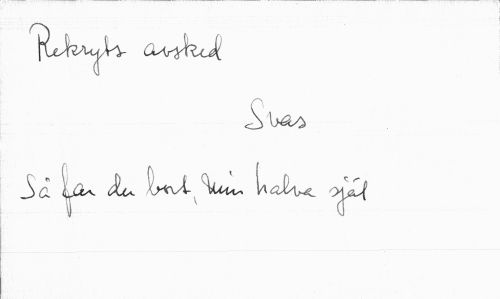 Rekryts avsked
Svas
Så far du bort, min halva själ